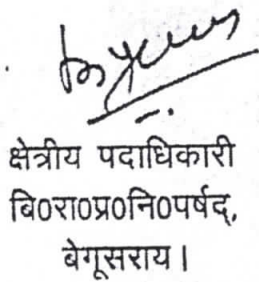 क्षेत्रीय पदाधिकारी
बि०रा०प्र०नि०पर्षद्,
बेगूसराय।